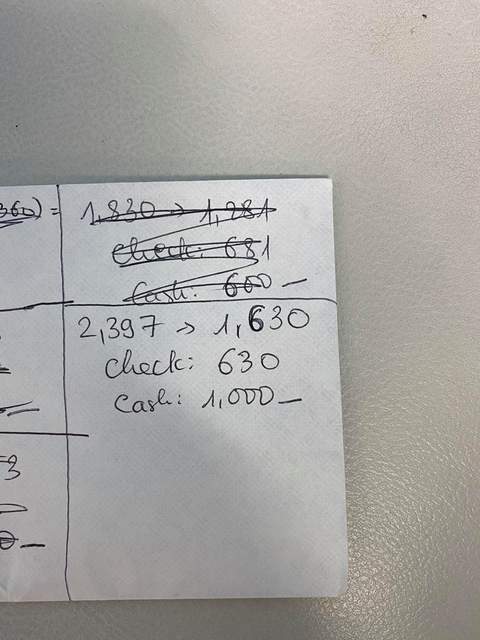 360) = 1,830 → 1,281
check: 681
Cash: 600 —
2,397 → 1,630
check: 630
Cash: 1,000 —